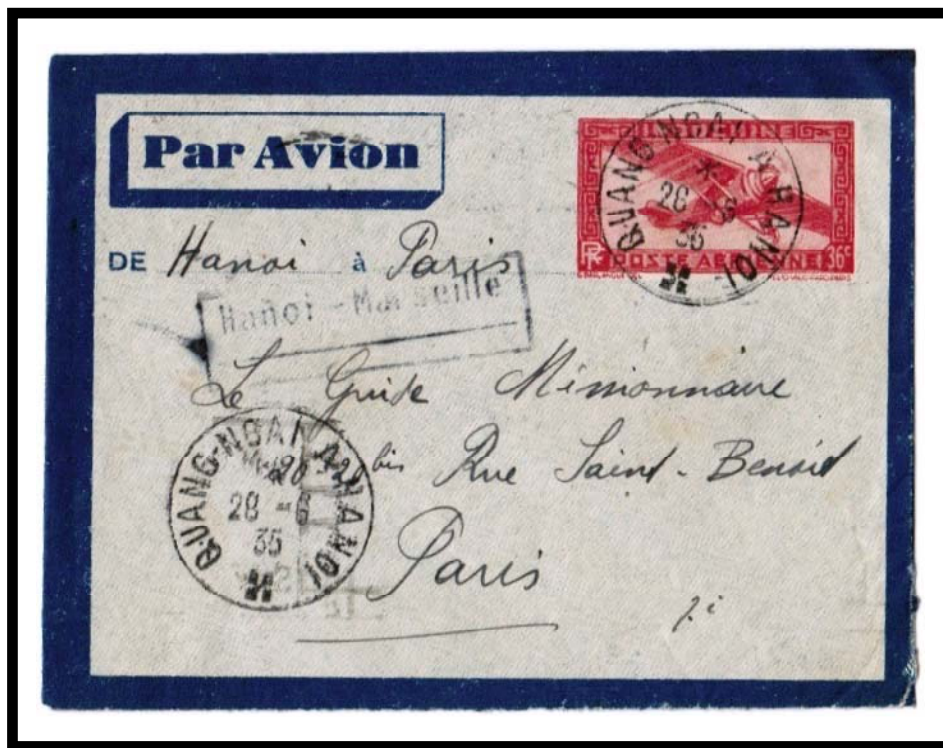 Par Avion
INDOCHINE
POSTE AERIENNE 36c
RF
QUANG-NGAI A HANOI
28 -6
35
DE Hanoi à Paris
Hanoi - Marseille
Le Guide Missionnaire
20 bis Rue Saint-Benoit
Paris
QUANG-NGAI A HANOI
28 -6
35